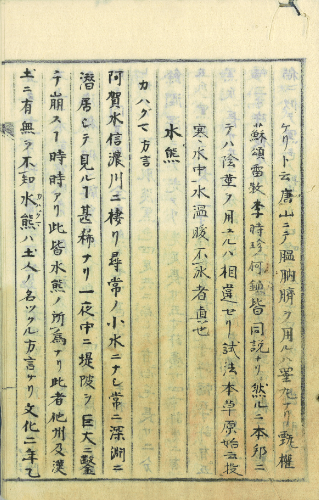 ケリト云唐山ニテ膃肭臍ヲ用ルハ睾丸ナリ甄權
蘇頌雷斅李時珍何鎮皆同説ナリ然ルニ本邦ニ
テハ陰莖ヲ用ユルハ相違セリ試法本草原始云投
寒水中水溫暖不氷者真也
水熊
カハグマ方言
阿賀水信濃川ニ棲リ尋常ノ小水ニナシ常ニ深淵ニ
潜居シテ見ルヿ甚稀ナリ一夜中ニ堤陂ヲ巨大ニ鑿
テ崩スヿ時時アリ此皆水熊ノ所為ナリ此者他州及漢
土ニ有無ヲ不知水熊カハグマハ土人ノ名ツクル方言ナリ文化二年乙